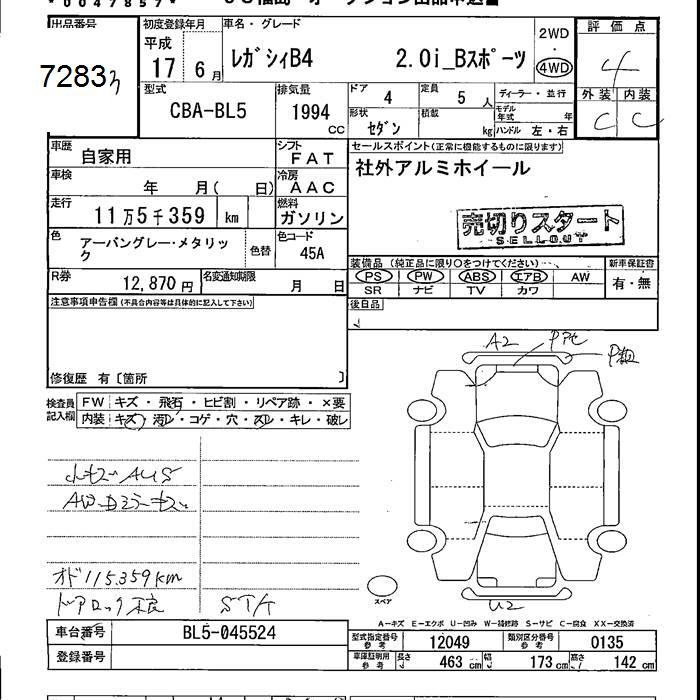 * 0047857 *
出品番号 初度登録年月 車名・グレード 2WD 評価点
72833
平成 17 6月 レガシィB4 2.0i_Bスポーツ 4WD 4
型式 CBA-BL5 排気量 1994 cc ドア 4 定員 5 人 ディーラー・並行 外装 内装
形状 セダン 積載 kg モデル年式 年 ハンドル 左・右 C C
車歴 自家用 シフト FAT セールスポイント(正常に機能するものに限ります)
車検 年 月( 日) 冷房 AAC 社外アルミホイール
走行 11万5千359 km 燃料 ガソリン 売切りスタート
SELLOUT
色 アーバングレー・メタリック 色替 色コード 45A
装備品(純正品に限り○をつけてください) 新車保証書
R券 12,870円 名変通知期限 月 日 PS PW ABS エアB AW 有・無
SR ナビ TV カワ
注意事項申告欄(不具合内容等は具体的に記入して下さい) 後日品
修復歴 有〔箇所 〕
A2
検査員記入欄 FW キズ・飛石・ヒビ割・リペア跡・×要
内装 キズ・汚レ・コゲ・穴・スレ・キレ・破レ
オド115.359km
ドアロック不良
U2
スペア
A-キズ E-エクボ U-凹み W-補修跡 S-サビ C-腐食 XX-交換済
車台番号 BL5-045524 型式指定番号 参考 12049 類別区分番号 参考 0135
登録番号 車庫証明用 参考 長さ 463 cm 幅 173 cm 高さ 142 cm